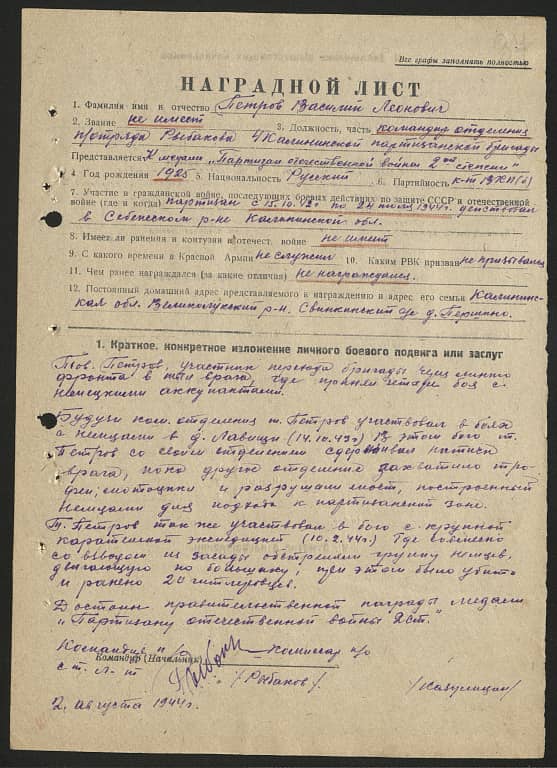 Все графы заполнять полностью
НАГРАДНОЙ ЛИСТ
1. Фамилия имя и отчество Петров Василий Леонович
2. Звание не имеет 3. Должность, часть командир отделения
п/отряда Рыбакова 4 Калининской партизанской бригады
Представляется К медали "Партизан отечественной войны 2ой степени"
4. Год рождения 1925 5. Национальность Русский 6. Партийность к-т ВКП(б)
7. Участие в гражданской войне, последующих боевых действиях по защите СССР и отечественной
войне (где и когда) партизан с 15.10.42г по 24 июля 1944г. действовал
в Себежском р-не Калининской обл.
8. Имеет ли ранения и контузии в отечест. войне не имеет
9. С какого времени в Красной Армии не служил 10. Каким РВК призван не призывался
11. Чем ранее награждался (за какие отличия) не награждался.
12. Постоянный домашний адрес представляемого к награждению и адрес его семьи Калининс-
кая обл. Великолукский р-н. Свинкинский с/с д. Першино.
1. Краткое, конкретное изложение личного боевого подвига или заслуг
Тов. Петров, участник перехода бригады через линию
фронта в тыл врага, где принял бой с
немецкими аккупантами.
Будучи ком. отделения т. Петров участвовал в боях
с немцами в д. Лавицы (14.10.43г) В этом бою т.
Петров со своим отделением сдерживал натиск
врага, пока другое отделение захватило тро-
феи, мотоцикл и разрушали мост, построенный
немцами для подхода к партизанской зоне.
Т. Петров также участвовал в бою с крупной
карательной экспедицией (10.2.44г.) Где совместно
со взводом из засады обстреляли группу немцев,
двигающую по большаку, при этом было убито
и ранено 20 гитлеровцев.
Достоин правительственной награды медали
"Партизану отечественной войны 2 ст."
Командир п/о Комиссар п/о
Командир (Начальник)
ст. л-т /Рыбаков/.
2. августа 1944г.